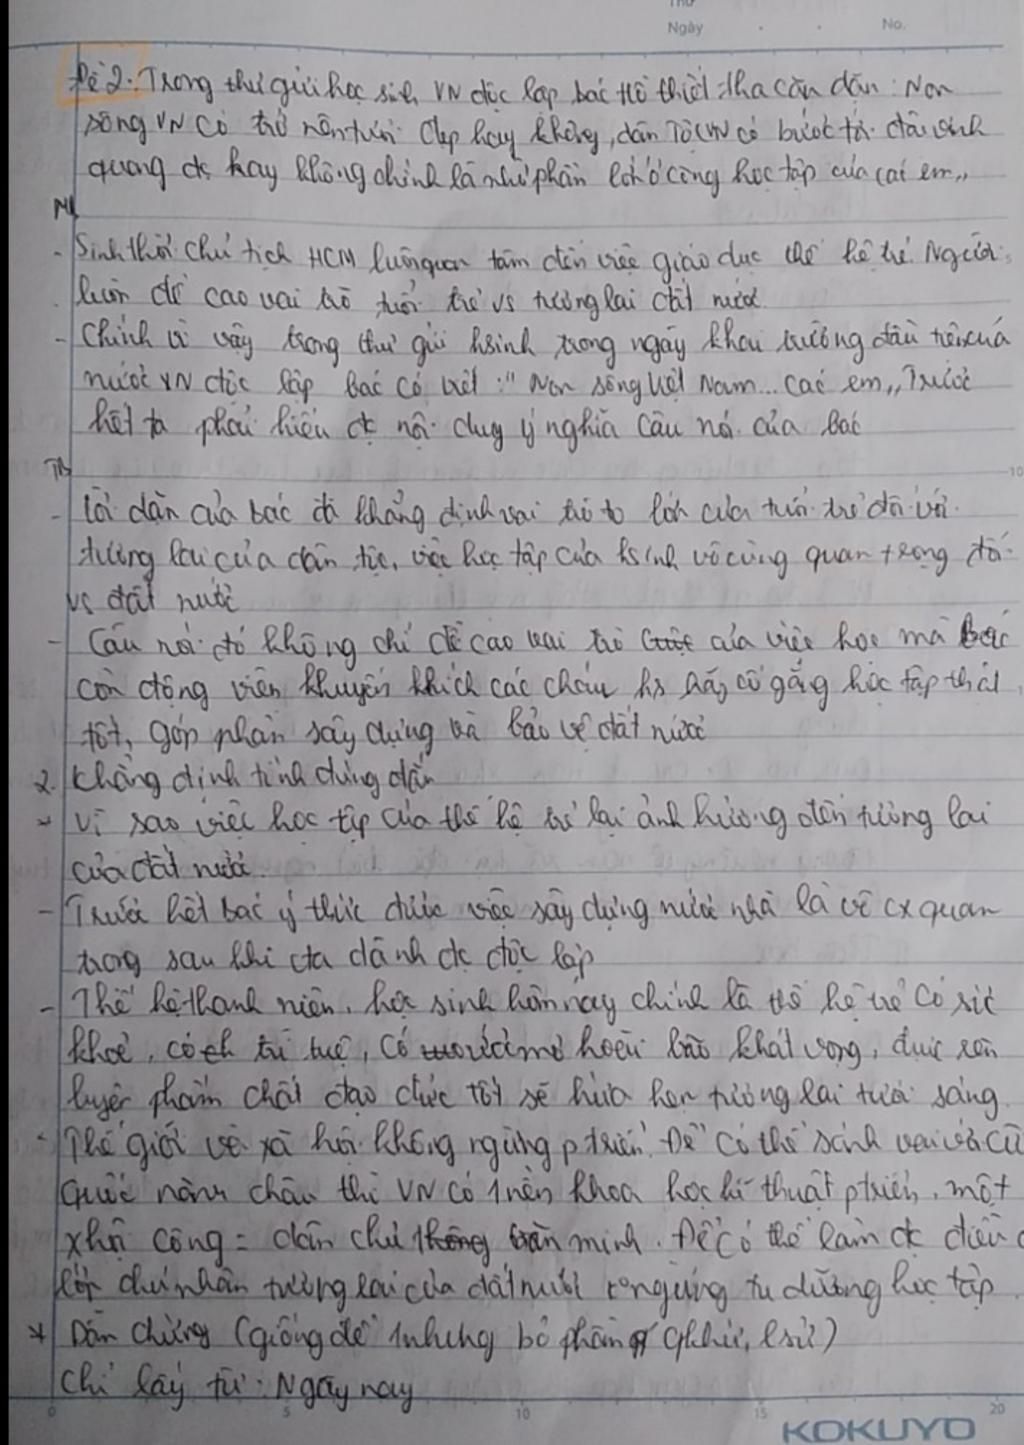 Thứ
Ngày No.
Đề 2: Trong thư gửi học sinh VN độc lập bác Hồ thiết tha căn dặn: Non
sông VN có trở nên tươi đẹp hay không, dân Tộc VN có bước tới đài vinh
quang đc hay không chính là nhờ phần lớn ở công học tập của các em„
MB
- Sinh thời chủ tịch HCM luôn quan tâm đến việc giáo dục thế hệ trẻ. Người
luôn đề cao vai trò tuổi trẻ vs tương lai đất nước
- Chính vì vậy trong thư gửi hsinh trong ngày khai trường đầu tiên của
nước VN độc lập bác có viết :" Non sông Việt Nam... các em„ Trước
hết ta phải hiểu đc nội dung ý nghĩa câu nói của bác
TB
- Lời dặn của bác đã khẳng định vai trò to lớn của tuổi trẻ đối với
tương lai của dân tộc, việc học tập của hsinh vô cùng quan trọng đối
vs đất nước
- Câu nói đó không chỉ đề cao vai trò của việc học mà bác
còn động viên khuyến khích các cháu hs hãy cố gắng học tập thật
tốt, góp phần sây dựng và bảo vệ đất nước
2. Khẳng định tính đúng đắn
* Vì sao việc học tập của thế hệ trẻ lại ảnh hưởng đến tương lai
của đất nước.
- Trước hết bác ý thức được việc sây dựng nước nhà là vô cx quan
trong sau khi cta dành đc độc lập
- Thế hệ thanh niên, học sinh hôm nay chính là thế hệ trẻ có sức
khoẻ, có trí tuệ, có ước mơ hoài bão khát vọng, được rèn
luyện phẩm chất đạo đức tốt sẽ hứa hẹn tương lai tươi sáng.
- Thế giới và xã hội không ngừng ptriển. Để có thể sánh vai với cừ
quốc năm châu thì VN có 1 nền khoa học kĩ thuật ptriển, một
xhội công = dân chủ văn minh. Để có thể làm đc điều
lớp chủ nhân tương lai của đất nước k ngừng tu dưỡng học tập.
* Dẫn chứng (giống đề 1 nhưng bỏ phần qkhứ, lsử)
Chỉ lấy từ: Ngày nay
0 5 10 15 20
KOKUYO